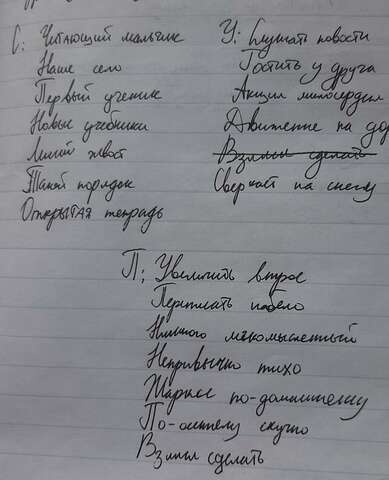 С: Читающий мальчик
Наше село
Первый ученик
Новые учебники
Лисий хвост
Такой порядок
Открытая тетрадь
У: Слушать новости
Гостить у друга
Акция милосердия
Движение по дор
Взмыл сделать
Сверкает на снегу
П: Увеличить втрое
Переписать набело
Немного легкомысленный
Непривычно тихо
Жаркое по-домашнему
По-осеннему скучно
сделать